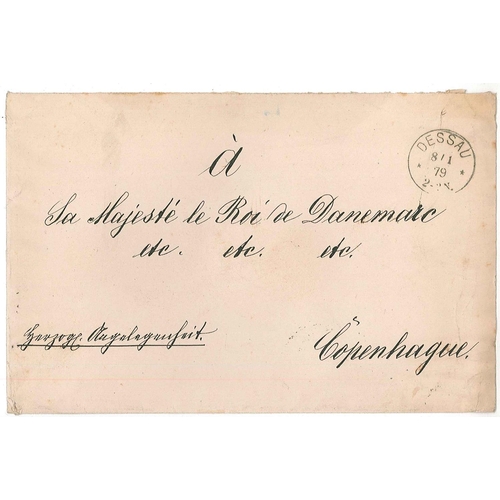 à
DESSAU
8/1
79
Sa Majesté le Roi de Danemarc
etc. etc. etc.
Herzogl. Angelegenheit.
Copenhague.